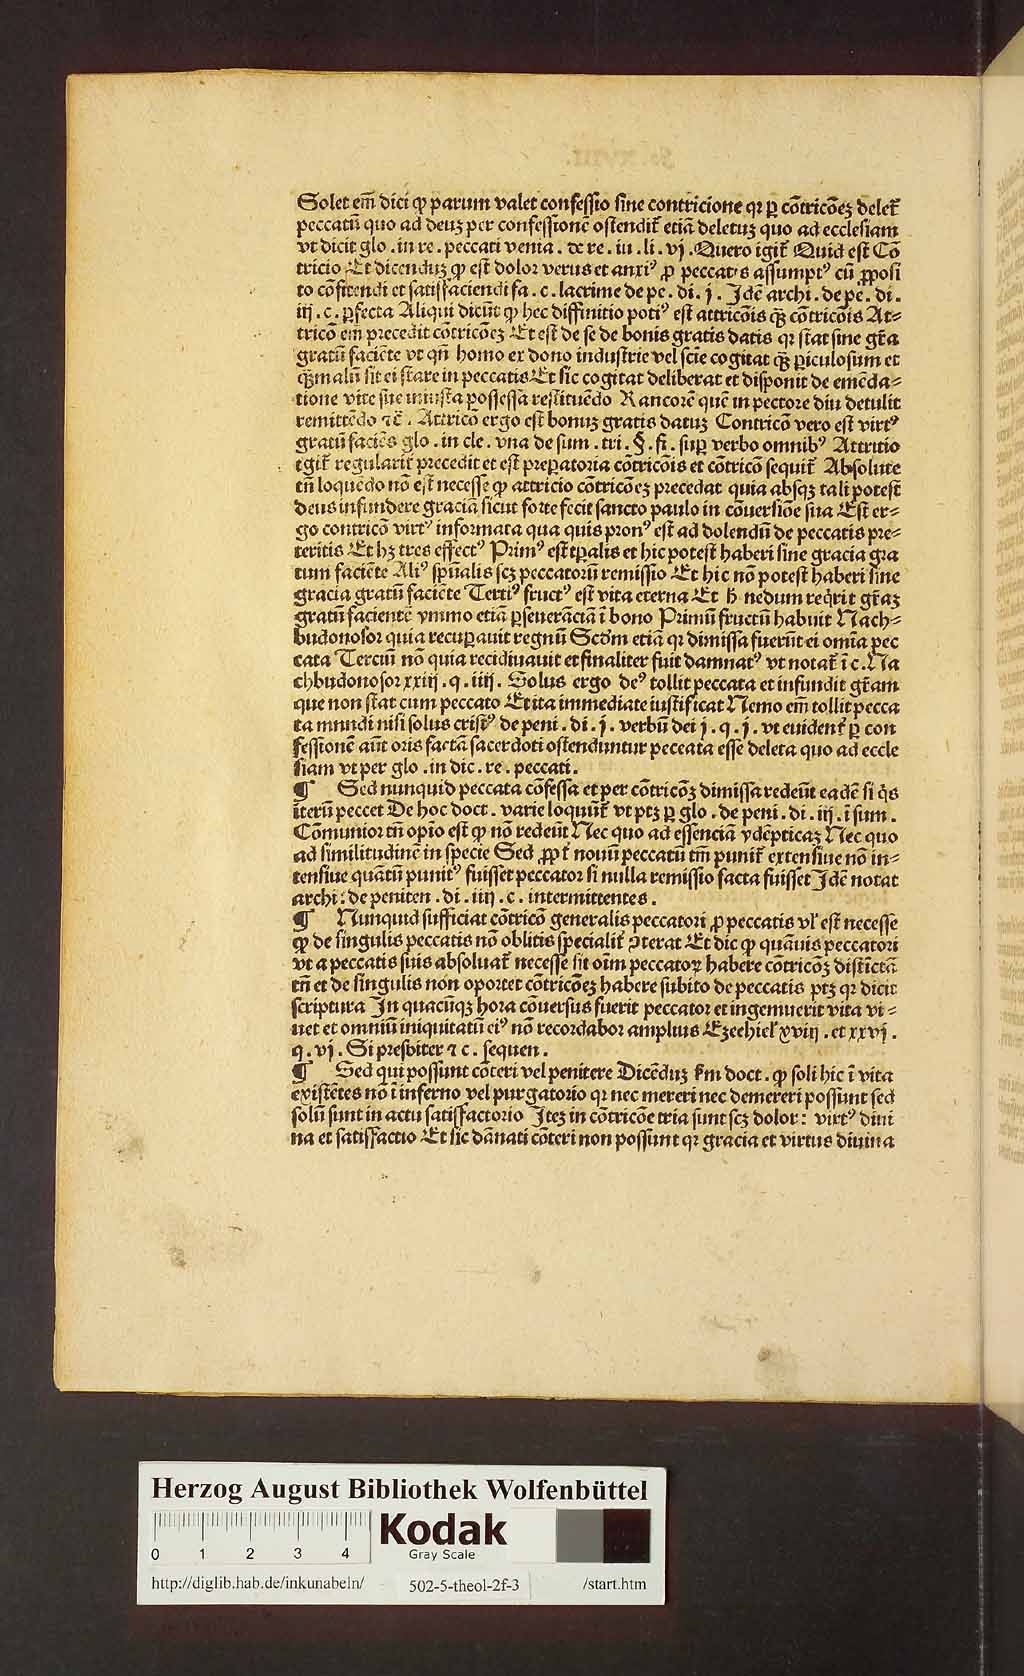 Solet em̄ dici ꝙ parum valet confessio sine contricione qꝛ ꝑ cōtricōeꝫ delet᷑
peccatū quo ad deuꝫ per confessionē ostendit᷑ etiā deletuꝫ quo ad ecclesiam
vt dicit glo . in re . peccati venia . de re . iu . li . vj . Quero igit᷑ Quid est Cō
tricio Et dicenduꝫ ꝙ est dolor verus et anxiꝰ ꝓ peccatis assumptꝰ cū ꝓposi
to cōfitendi et satisfaciendi fa . c . lacrime de pe . di . j . Idē archi . de pe . di .
iij . c . ꝑfecta Aliqui dicūt ꝙ hec diffinitio potiꝰ est attricōis qꝫ̄ cōtricōis At-
tricō em̄ precedit cōtricōeꝫ Et est de se de bonis gratis datis qꝛ stat sine gr̄a
gratū faciēte vt qn̄ homo ex dono industrie vel scīe cogitat qꝫ̄ ꝑiculosum et
qꝫ̄ malū sit ei stare in peccatis Et sic cogitat deliberat et disponit de emēda-
tione vite sue iniusta possessa restituēdo Rancorē quē in pectore diu detulit
remittēdo ⁊c̄ . Attricō ergo est bonuꝫ gratis datuꝫ Contricō vero est virtꝰ
gratū faciēs glo . in cle . vna de sum . tri . §. fi . suꝑ verbo omnibꝰ Attritio
igit᷑ regularit᷑ precedit et est preꝑatoria cōtricōis et cōtricō sequit᷑ Absolute
tn̄ loquēdo nō est necesse ꝙ attricio cōtricōeꝫ precedat quia absqꝫ tali potest
deus infundere graciā sicut forte fecit sancto paulo in cōuersiōe sua Est er-
go contricō virtꝰ informata qua quis pronꝰ est ad dolendū de peccatis pre-
teritis Et hꝫ tres effectꝰ Primꝰ est tꝑalis et hic potest haberi sine gracia gra
tum faciēte Aliꝰ spūalis scꝫ peccatorū remissio Et hic nō potest haberi sine
gracia gratū faciēte Tertiꝰ fructꝰ est vita eterna Et h̄ nedum req̇rit gr̄aꝫ
gratū facientē ymmo etiā ꝑseuerāciā ī bono Primū fructū habuit Nach-
budonosor quia recuꝑauit regnū Scd̄m etiā qꝛ dimissa fuerūt ei om̄ia pec
cata Terciū nō quia recidiuauit et finaliter fuit damnatꝰ vt notat᷑ ī c . Na
chbudonosor xxiij . q . iiij . Solus ergo deꝰ tollit peccata et infundit gr̄am
que non stat cum peccato Et ita immediate iustificat Nemo em̄ tollit pecca
ta mundi nisi solus cristꝰ de peni . di . j . verbū dei j . q . j . vt euident᷑ ꝑ con
fessionē aūt oris factā sacerdoti ostenduntur peccata esse deleta quo ad eccle
siam vt per glo . in dic . re . peccati .
¶ Sed nunquid peccata cōfessa et per cōtricōꝫ dimissa redeūt eadē si q̇s
iterū peccet De hoc doct . varie loquūt᷑ vt ptꝫ ꝑ glo . de peni . di . iij . ī sum .
Cōmunior tn̄ opio est ꝙ nō redeūt Nec quo ad essenciā ydēpticaꝫ Nec quo
ad similitudinē in specie Sed ꝓpt᷑ nouū peccatū tm̄ punit᷑ extensiue nō in-
tensiue quātū punitꝰ fuisset peccator si nulla remissio facta fuisset Idē notat
archi : de peniten . di . iiij . c . intermittentes .
¶ Nunquid sufficiat cōtricō generalis peccatori ꝓ peccatis vl̕ est necesse
ꝙ de singulis peccatis nō oblitis specialit᷑ ꝯterat Et dic ꝙ quāuis peccatori
vt a peccatis suis absoluat᷑ necesse sit oīm peccatoꝝ habere cōtricōꝫ distīctā
tn̄ et de singulis non oportet cōtricōeꝫ habere subito de peccatis ptꝫ qꝛ dicit
scriptura In quacūqꝫ hora cōuersus fuerit peccator et ingemuerit vita vi-
uet et omniū iniquitatū eiꝰ nō recordabor amplius Ezechiel̕ xviij . et xxvj .
q . vj . Si presbiter ⁊ c . sequen .
¶ Sed qui possunt cōteri vel penitere Dicēduꝫ sm̄ doct . ꝙ soli hic ī vita
existētes nō ī inferno vel purgatorio qꝛ nec mereri nec demereri possunt sed
solū sunt in actu satisfactorio Iteꝫ in cōtricōe tria sunt scꝫ dolor : virtꝰ diui
na et satisfactio Et sic dānati cōteri non possunt qꝛ gracia et virtus diuina
Herzog August Bibliothek Wolfenbüttel
0 1 2 3 4
Kodak
Gray Scale
http://diglib.hab.de/inkunabeln/ 502-5-theol-2f-3 /start.htm